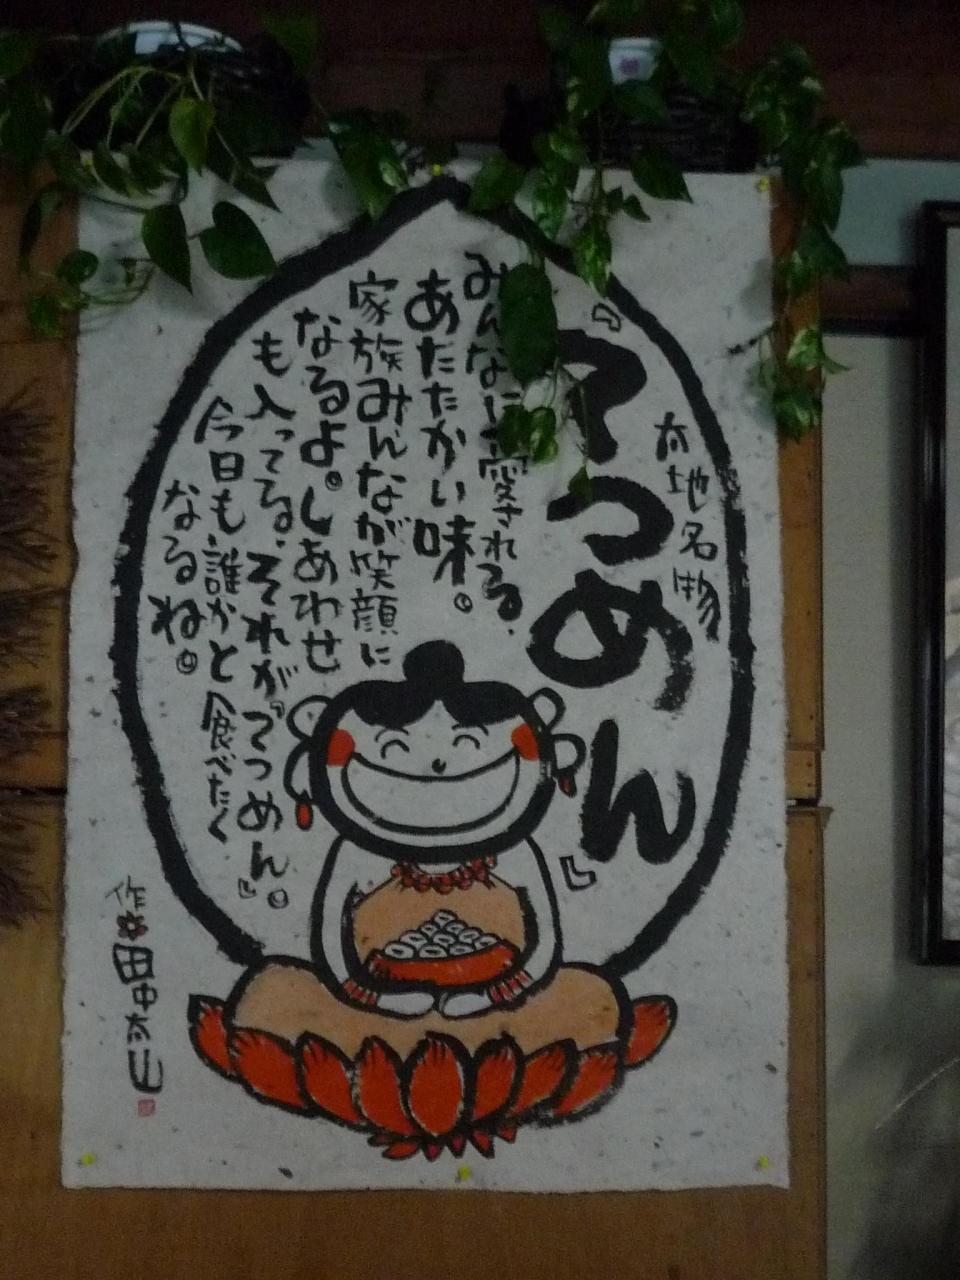 太地名物
『てつめん』
みんなに愛される、
あたたかい味。
家族みんなが笑顔に
なるよ。しあわせ
も入ってる、それが『てつめん』。
今日も誰かと食べたく
なるね。
作 田中太山